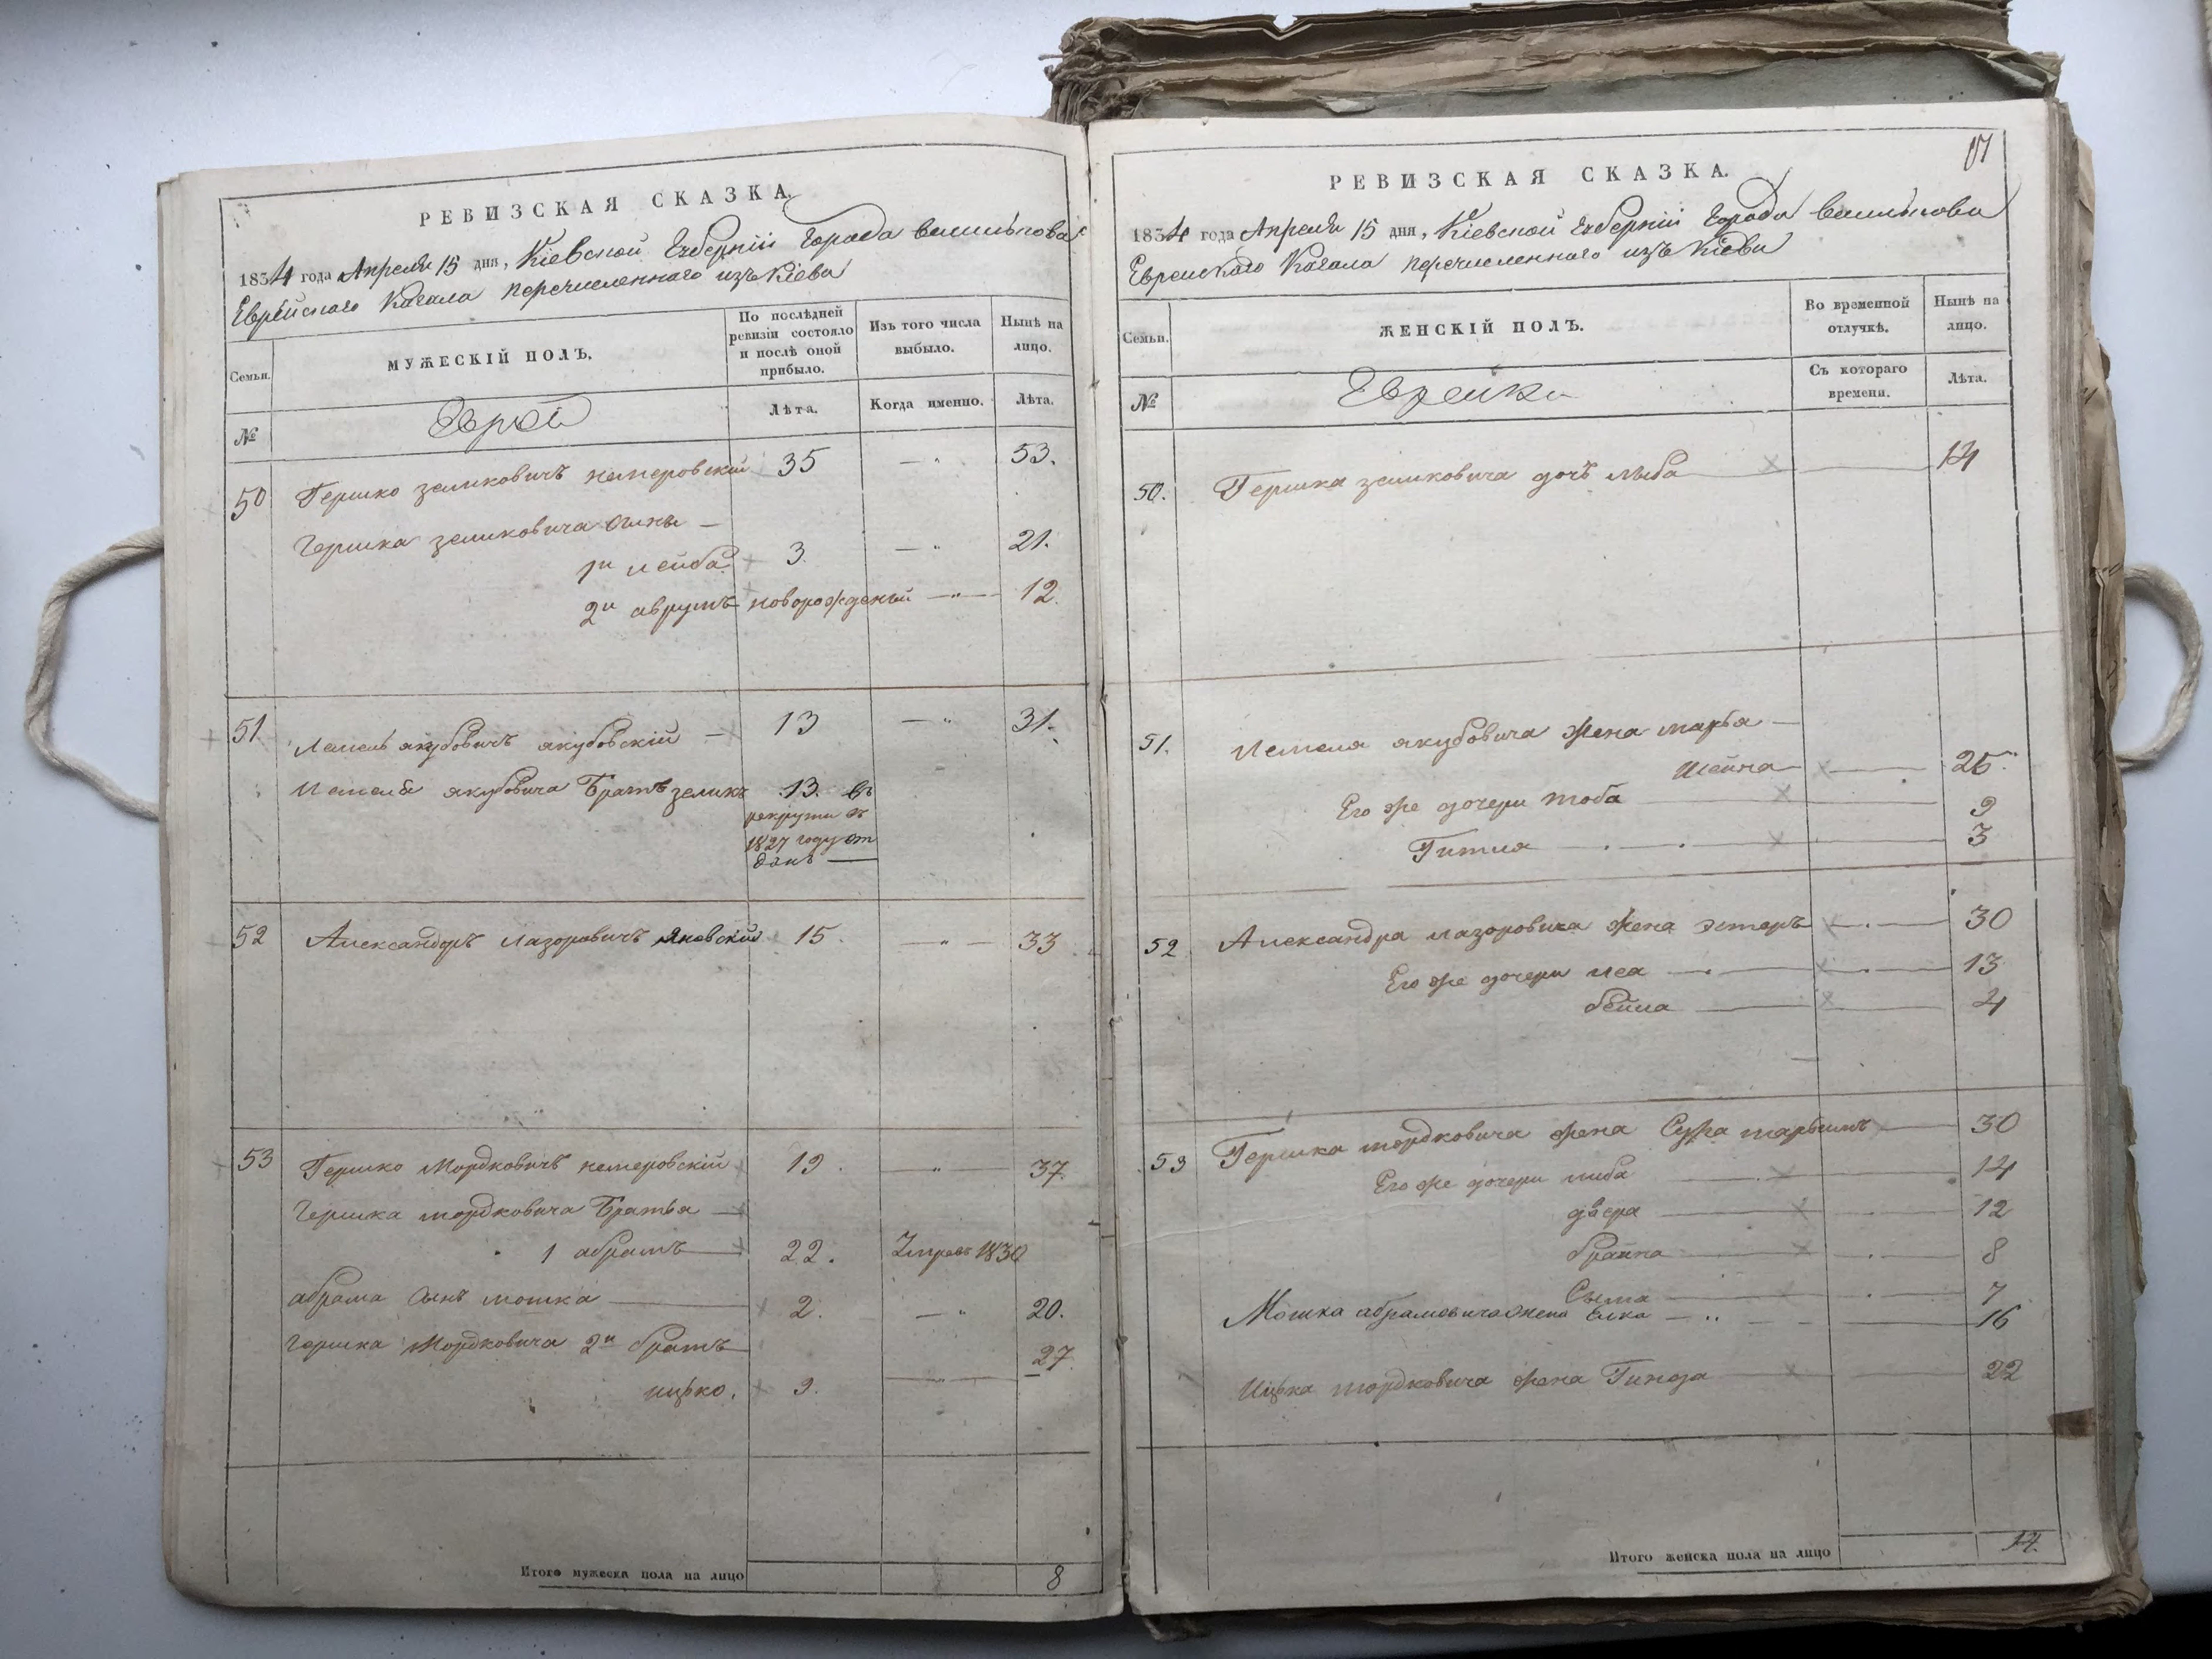 РЕВИЗСКАЯ СКАЗКА.
1834 года Апреля 15 дня, Кіевской Губерніи Города Василькова
Еврейскаго Кагала перечисленнаго изъ Кіева
Семьи.
МУЖЕСКІЙ ПОЛЪ.
По послѣдней ревизіи состояло и послѣ оной прибыло.
Изъ того числа выбыло.
Нынѣ на лицо.
№
Еврей
Лѣта.
Когда именно.
Лѣта.
50 Гершко Зеликовичъ немеровскій 35 — " 53.
Гершка зеликовича сыны —
1й лейба 3. — " 21.
2й аврумъ новорожденый — " — 12.
51 Лемель якубовичъ якубовскій — 13 — " 31.
Лемеля якубовича Братъ зеликъ 13. въ
рекруты въ
1827 году от
данъ —
52 Александръ лазоровичъ Яновскій 15. — " — 33
53 Гершко Мордковичъ немеровскій 19. — " — 37.
Гершка мордковича Братья —
1 абрамъ — 22. Умре въ 1830
абрама сынъ мошка — 2. — " 20.
Гершка Мордковича 2й братъ 27.
ицко. 9. — " —
Итого мужеска пола на лицо 8
17
РЕВИЗСКАЯ СКАЗКА.
1834 года Апреля 15 дня, Кіевской Губерніи Города Василькова
Еврейскаго Кагала перечисленнаго изъ Кіева
Семьи.
ЖЕНСКІЙ ПОЛЪ.
Во временной отлучкѣ.
Нынѣ на лицо.
№
Еврейки
Съ котораго времени.
Лѣта.
50. Гершка зеликовича дочъ — 14
51. Лемеля якубовича жена марья —
Шейна — 25.
Его же дочери тоба — 9
Гитля — 3
52 Александра лазоровича жена эстеръ — 30
Его же дочери лея — 13
бейла — 4
53 Гершка мордковича жена Сура — 30
Его же дочери — 14
двера — 12
брайна — 8
Сыма — 7
Мошка абрамовича жена Елка — 16
Ицка мордковича жена Гинда — 22
Итого женска пола на лицо 14.